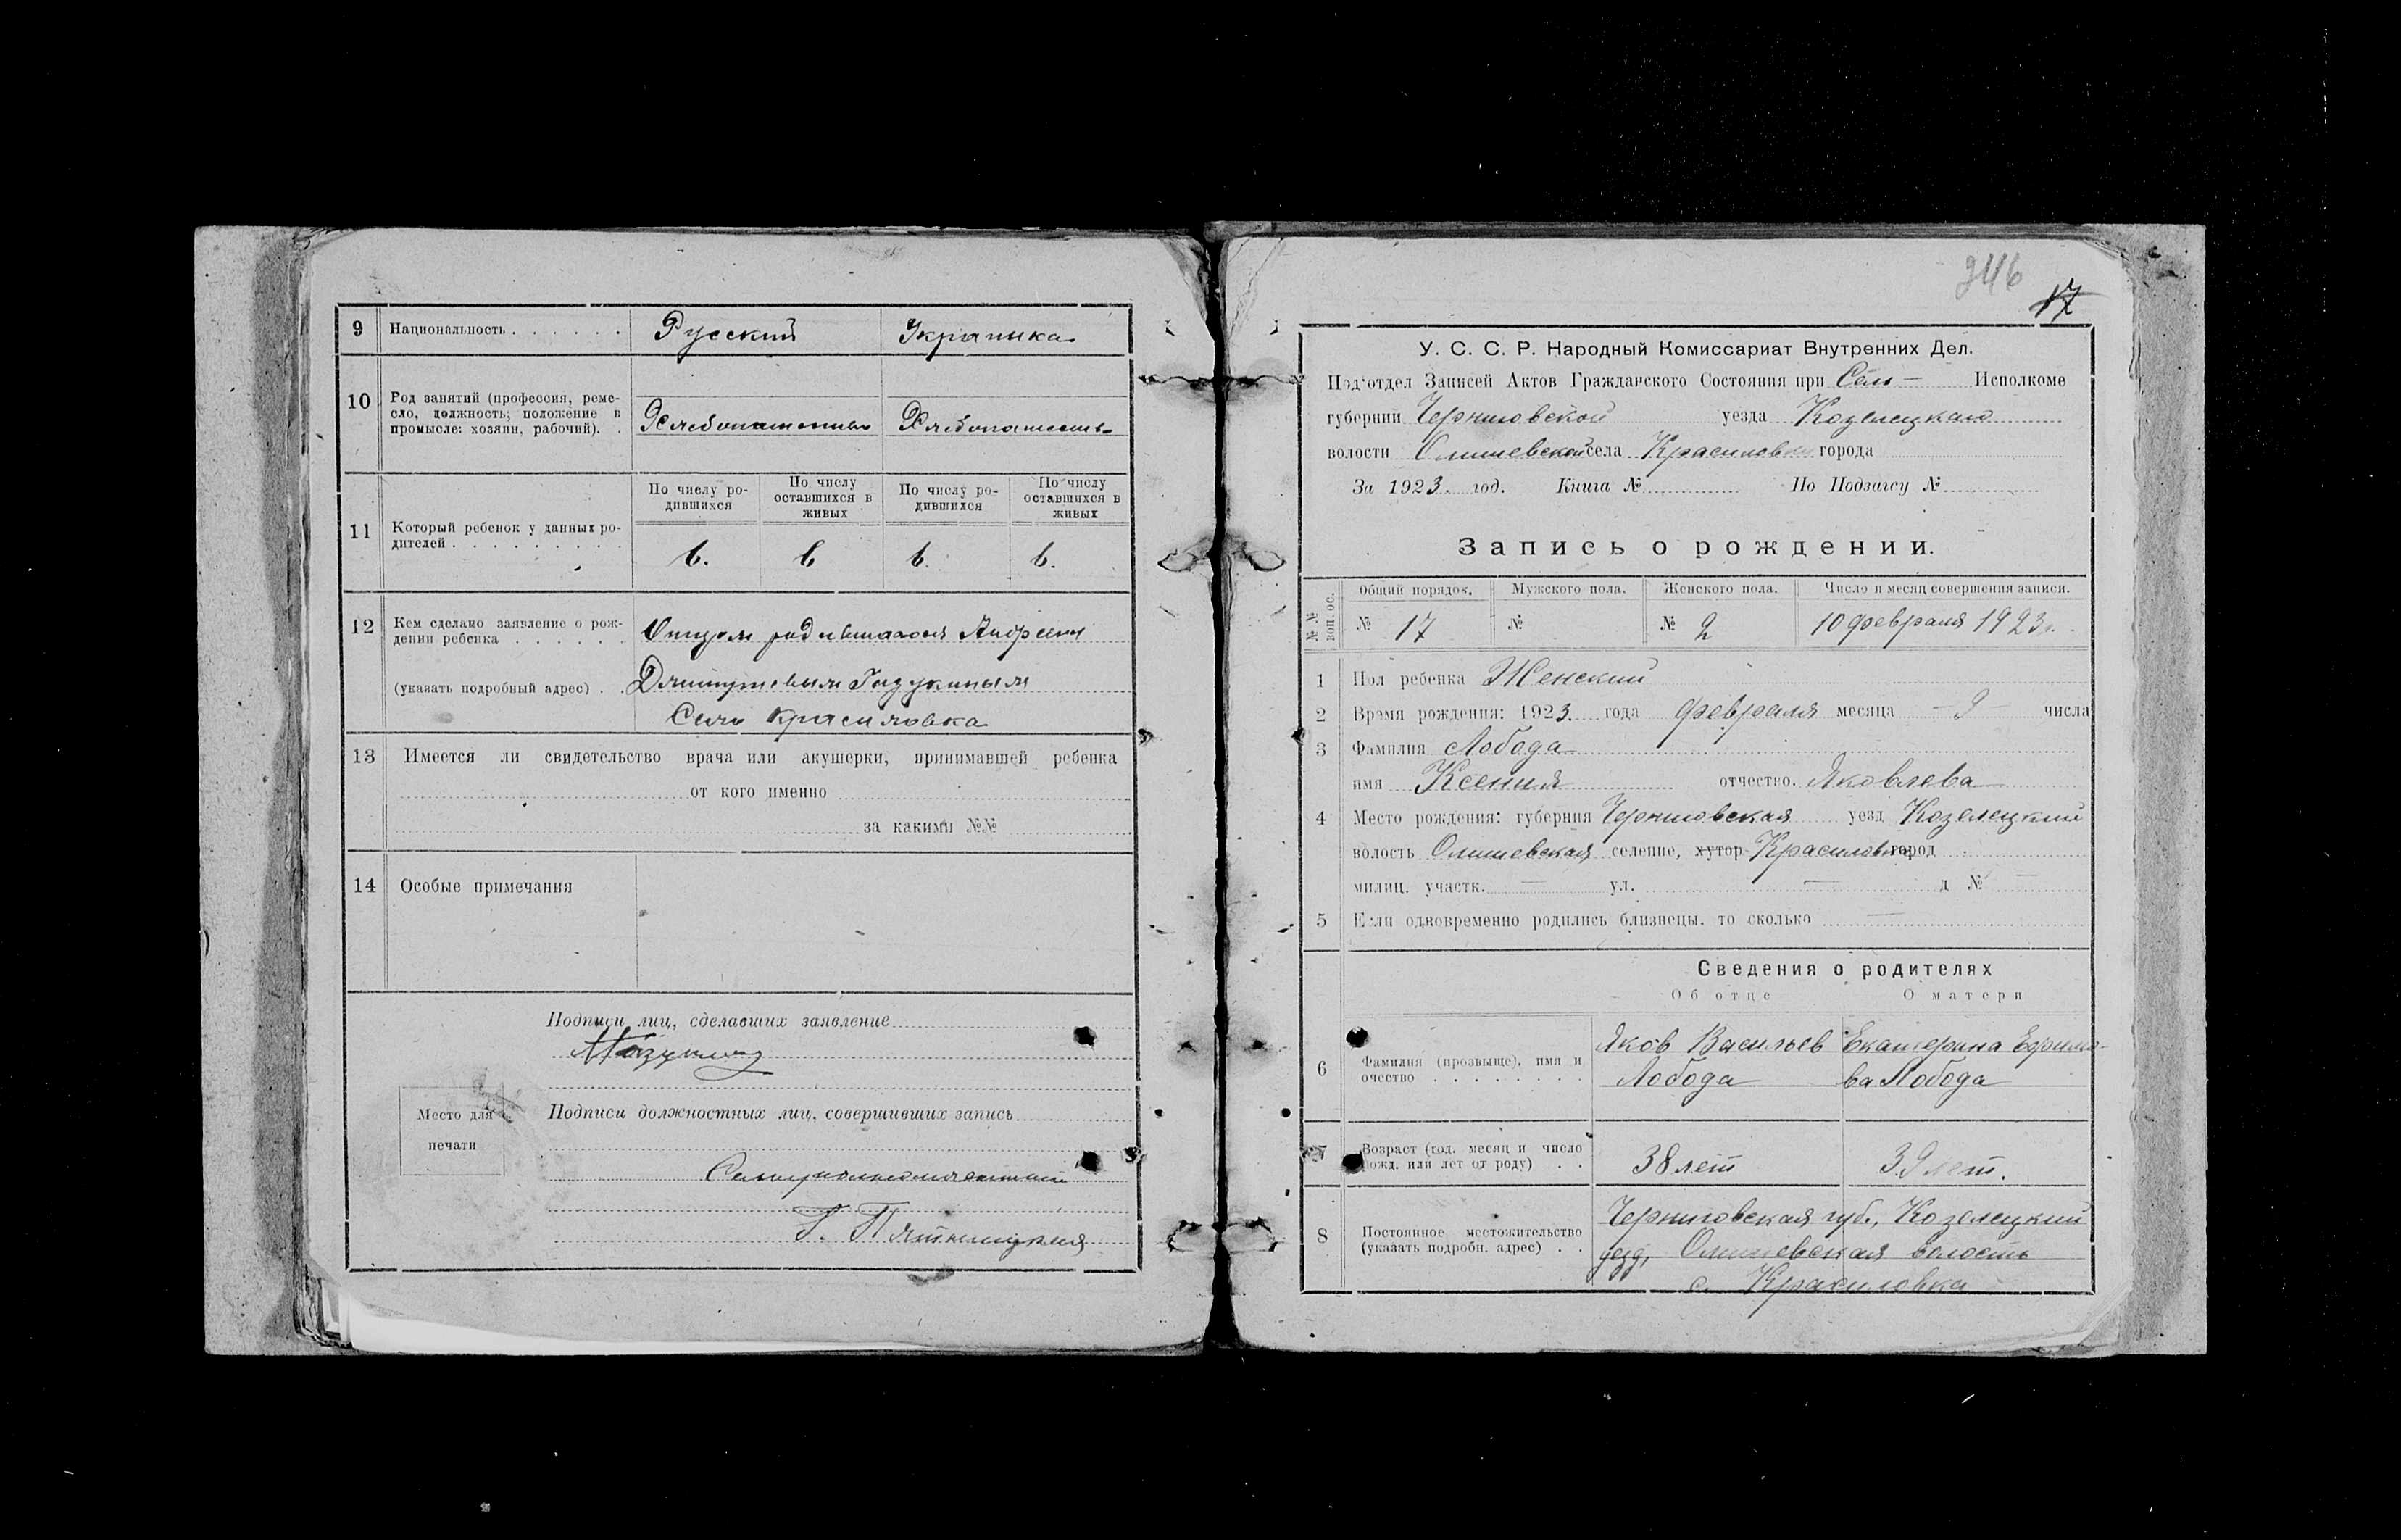 9 Национальность . . . . . . Русский Украинка
10 Род занятий (профессия, реме-
сло, должность; положение в
промысле: хозяин, рабочий). . Хлебопашество Хлебопашеств-
11 Который ребенок у данных ро-
дителей . . . . . . . . .
По числу ро-
дившихся
По числу
оставшихся в
живых
По числу ро-
дившихся
По числу
оставшихся в
живых
6. 6 6. 6.
12 Кем сделано заявление о рож-
дении ребенка . . . . . . Отцом родившагося Андреем
(указать подробный адрес) . Дмитриевым
Село Красиловка
13 Имеется ли свидетельство врача или акушерки, принимавшей ребенка
от кого именно
за какими №№
14 Особые примечания
Подписи лиц, сделавших заявление
Место для
печати
Подписи должностных лиц, совершивших запись
246
17
У. С. С. Р. Народный Комиссариат Внутренних Дел.
Под'отдел Записей Актов Гражданского Состояния при Сель- Исполкоме
губернии Черниговской уезда Козелецкаго
волости Олишевской села Красиловки города
За 1923. год. Книга № По Подзагсу №
Запись о рождении.
№№ воп. ос. Общий порядок. Мужского пола. Женского пола. Число и месяц совершения записи.
№ 17 № № 2 10 февраля 1923 г.
1 Пол ребенка Женский
2 Время рождения: 1923. года февраля месяца - 9 - числа
3 Фамилия Лобода
имя Ксения отчество. Яковлева
4 Место рождения: губерния Черниговская уезд Козелецкий
волость Олишевская селение, хутор Красиловка город
милиц. участк. — ул. — д № —
5 Если одновременно родились близнецы, то сколько —
Сведения о родителях
Об отце О матери
6 Фамилия (прозвище), имя и
очество . . . . . . . .
Яков Васильев
Лобода
Екатерина Ефимо-
ва Лобода
7 Возраст (год, месяц и число
рожд. или лет от роду) . . 38 лет 39 лет.
8 Постоянное местожительство
(указать подробн. адрес) . .
Черниговская губ., Козелецкий
уезд, Олишевская волость
с. Красиловка